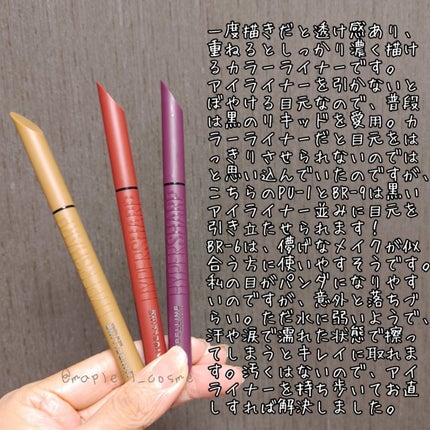 一度描きだと透け感あり、
重ねるとしっかり濃く描け
るカラーライナーです。
アイライナーを引かないと
ぼやける目元なので、普段
は黒のリキッドを愛用。カ
ラーライナーだと目元をは
っきりさせられないのでは
と思い込んでいたのですが、
こちらのPU-1とBR-9は黒い
アイライナー並みに目元を
引き立たせられます！
BR-6は、儚げなメイクが似
合う方に使いやすそうです。
私の目がパンダになりやす
いのですが、意外と落ちづ
らい。ただ水に弱いようで、
汗や涙で濡れた状態で擦っ
てしまうとキレイに取れま
す。汚くはないので、アイ
ライナーを持ち歩いてお直
しすれば解決しました。